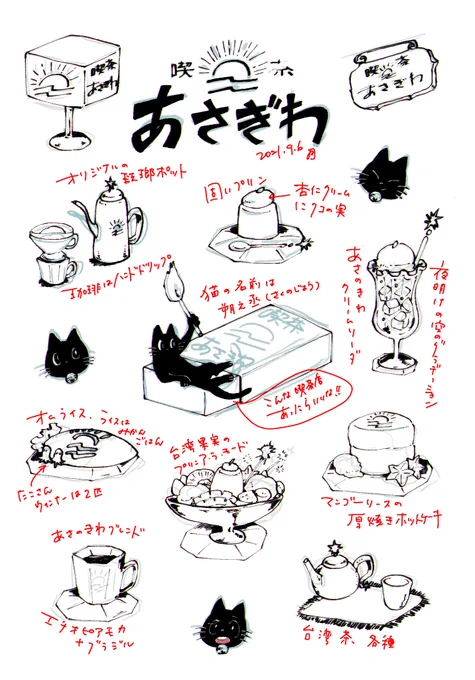 喫茶
あさぎわ
喫茶
あさぎわ
喫茶
あさぎわ
2021.9.6 月
オリジナルの
琺瑯ポット
珈琲はハンドドリップ
固いプリン
杏仁クリーム
にクコの実
猫の名前は
朔之丞(さくのじょう)
喫茶
あさぎわ
こんな喫茶店
あったらいいな!!
あさのきわ
クリームソーダ
夜明けの空のグラデーション
オムライス、ライスは
かやくごはん
たこさん
ウィンナーは2匹
台湾果実の
プリンアラモード
マンゴーソースの
厚焼きホットケーキ
あさのきわブレンド
エチオピアモカ
+ブラジル
台湾茶、各種